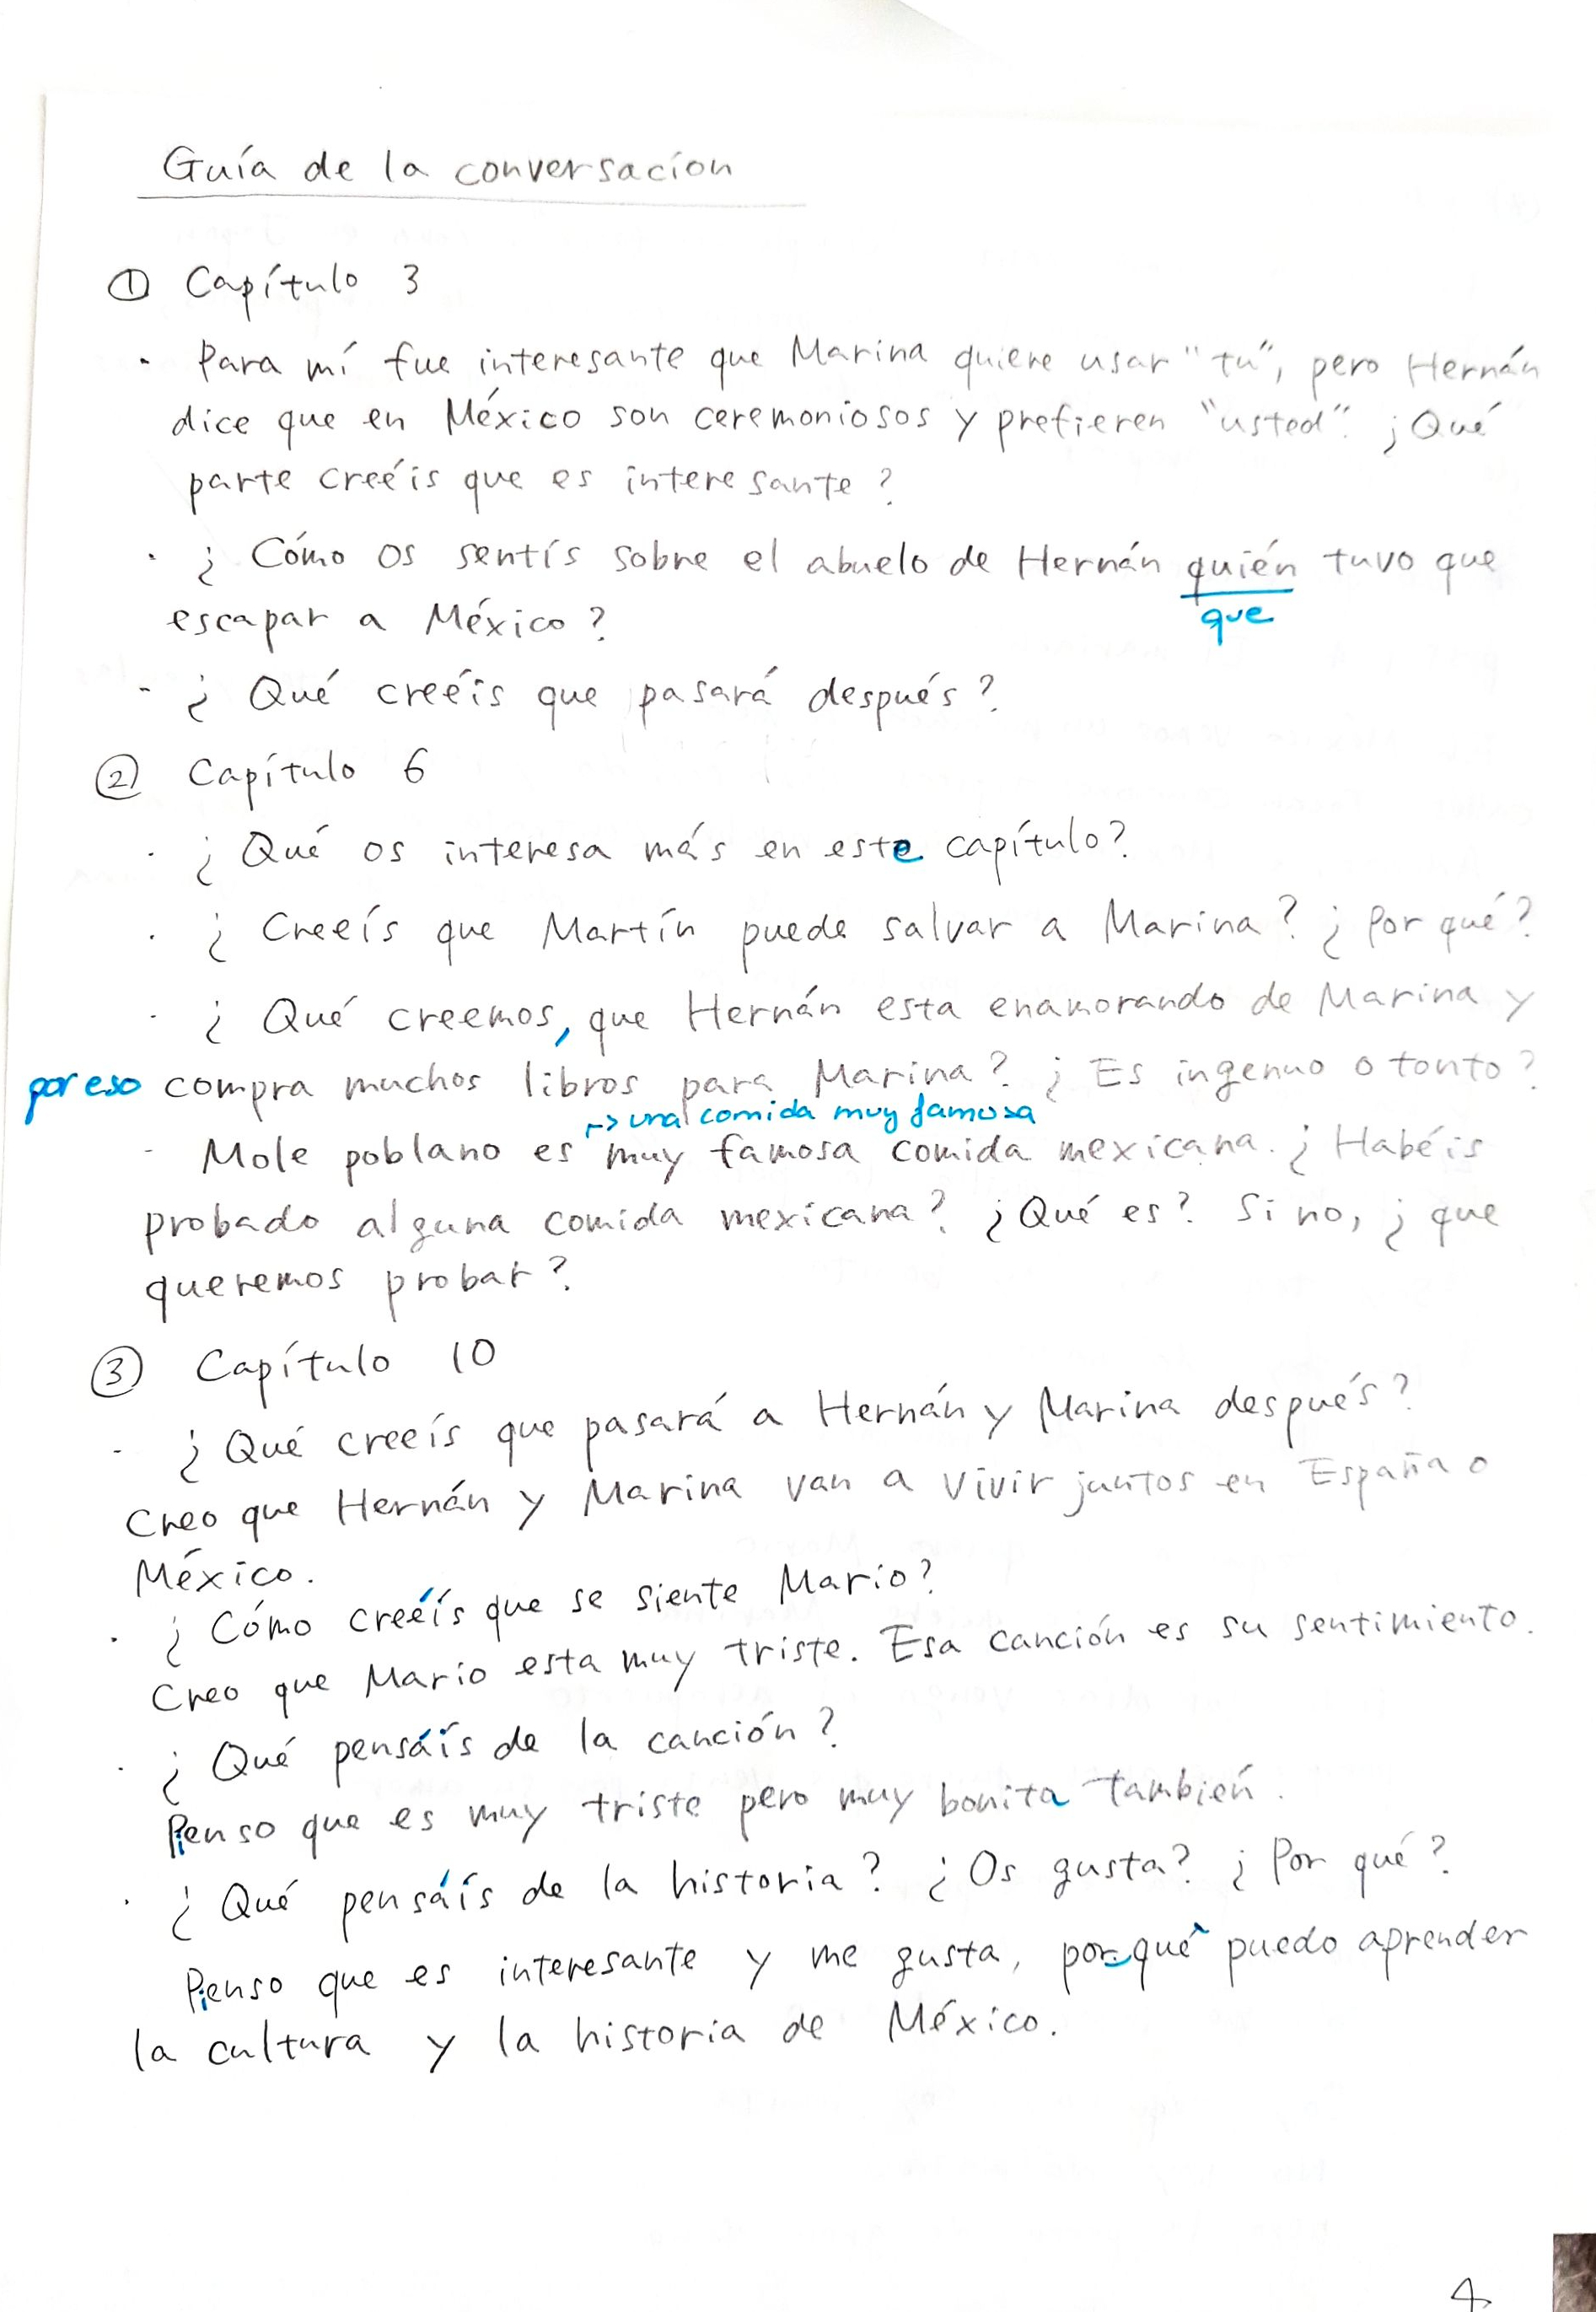 Guía de la conversacíon
① Capítulo 3
· Para mí fue interesante que Marina quiere usar "tu", pero Hernán
dice que en México son ceremoniosos y prefieren "usted". ¿Qué
parte creéis que es interesante?
· ¿Cómo os sentís sobre el abuelo de Hernán quién tuvo que
que
escapar a México?
- ¿Qué creéis que pasará después?
② Capítulo 6
· ¿Qué os interesa más en este capítulo?
· ¿Creeís que Martín puede salvar a Marina? ¿Por qué?
· ¿Qué creemos, que Hernán esta enamorando de Marina y
por eso compra muchos libros para Marina? ¿Es ingenuo o tonto?
→ una comida muy famosa
- Mole poblano es muy famosa comida mexicana. ¿Habéis
probado alguna comida mexicana? ¿Qué es? Si no, ¿que
queremos probar?
③ Capítulo 10
- ¿Qué creeís que pasará a Hernán y Marina después?
Creo que Hernán y Marina van a vivir juntos en España o
México.
· ¿Cómo creéís que se siente Mario?
Creo que Mario esta muy triste. Esa canción es su sentimiento.
· ¿Qué pensáís de la canción?
Pienso que es muy triste pero muy bonita tambień.
· ¿Qué pensáís de la historia? ¿Os gusta? ¿Por qué?
Pienso que es interesante y me gusta, porqué puedo aprender
la cultura y la historia de México.
4